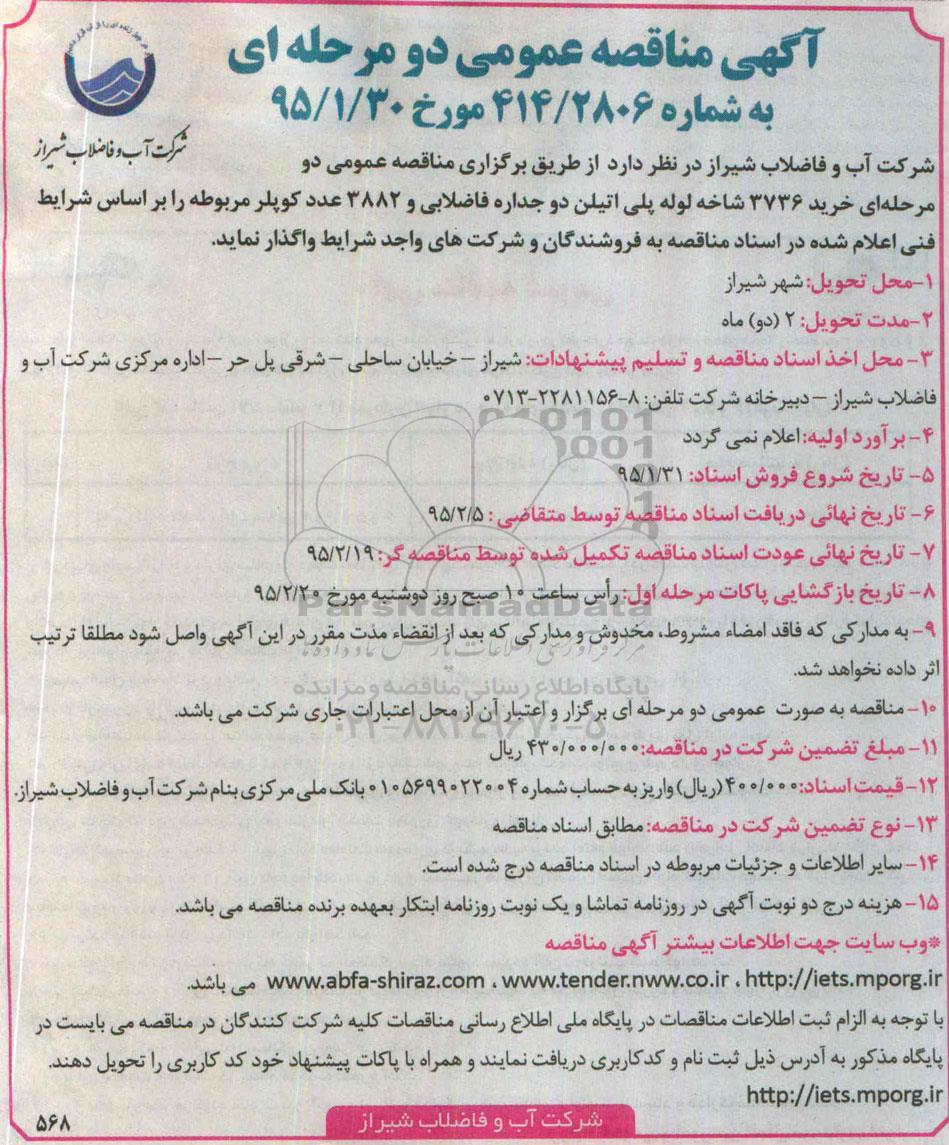 آگهی مناقصه عمومی دو مرحله ای
به شماره ۴۱۴/۲۸۰۶ مورخ ۹۵/۱/۳۰
شرکت آب و فاضلاب شیراز
شرکت آب و فاضلاب شیراز در نظر دارد از طریق برگزاری مناقصه عمومی دو
مرحله‌ای خرید ۳۷۳۶ شاخه لوله پلی اتیلن دو جداره فاضلابی و ۳۸۸۲ عدد کوپلر مربوطه را بر اساس شرایط
فنی اعلام شده در اسناد مناقصه به فروشندگان و شرکت های واجد شرایط واگذار نماید.
۱-محل تحویل: شهر شیراز
۲-مدت تحویل: ۲ (دو) ماه
۳- محل اخذ اسناد مناقصه و تسلیم پیشنهادات: شیراز – خیابان ساحلی – شرقی پل حر –اداره مرکزی شرکت آب و
فاضلاب شیراز – دبیرخانه شرکت تلفن: ۸-۰۷۱۳-۲۲۸۱۱۵۶
۴- برآورد اولیه: اعلام نمی گردد
۵- تاریخ شروع فروش اسناد: ۹۵/۱/۳۱
۶- تاریخ نهائی دریافت اسناد مناقصه توسط متقاضی : ۹۵/۲/۵
۷- تاریخ نهائی عودت اسناد مناقصه تکمیل شده توسط مناقصه گر: ۹۵/۲/۱۹
۸- تاریخ بازگشایی پاکات مرحله اول: رأس ساعت ۱۰ صبح روز دوشنبه مورخ ۹۵/۲/۲۰
ParsNamadData
۹- به مدارکی که فاقد امضاء مشروط، مخدوش و مدارکی که بعد از انقضاء مدت مقرر در این آگهی واصل شود مطلقا ترتیب
اثر داده نخواهد شد.
پایگاه اطلاع رسانی مناقصه و مزایده
۱۰- مناقصه به صورت عمومی دو مرحله ای برگزار و اعتبار آن از محل اعتبارات جاری شرکت می باشد.
۰۲۱-۸۸۳۴۹۶۷۰-۵
۱۱- مبلغ تضمین شرکت در مناقصه: ۴۳۰/۰۰۰/۰۰۰ ریال
۱۲- قیمت اسناد: ۴۰۰/۰۰۰ (ریال) واریز به حساب شماره ۰۱۰۵۶۹۹۰۲۲۰۰۴ بانک ملی مرکزی بنام شرکت آب و فاضلاب شیراز.
۱۳- نوع تضمین شرکت در مناقصه: مطابق اسناد مناقصه
۱۴- سایر اطلاعات و جزئیات مربوطه در اسناد مناقصه درج شده است.
۱۵- هزینه درج دو نوبت آگهی در روزنامه تماشا و یک نوبت روزنامه ابتکار بعهده برنده مناقصه می باشد.
*وب سایت جهت اطلاعات بیشتر آگهی مناقصه
http://iets.mporg.ir ، www.tender.nww.co.ir ، www.abfa-shiraz.com می باشد.
با توجه به الزام ثبت اطلاعات مناقصات در پایگاه ملی اطلاع رسانی مناقصات کلیه شرکت کنندگان در مناقصه می بایست در
پایگاه مذکور به آدرس ذیل ثبت نام و کدکاربری دریافت نمایند و همراه با پاکات پیشنهاد خود کد کاربری را تحویل دهند.
http://iets.mporg.ir
شرکت آب و فاضلاب شیراز
۵۶۸